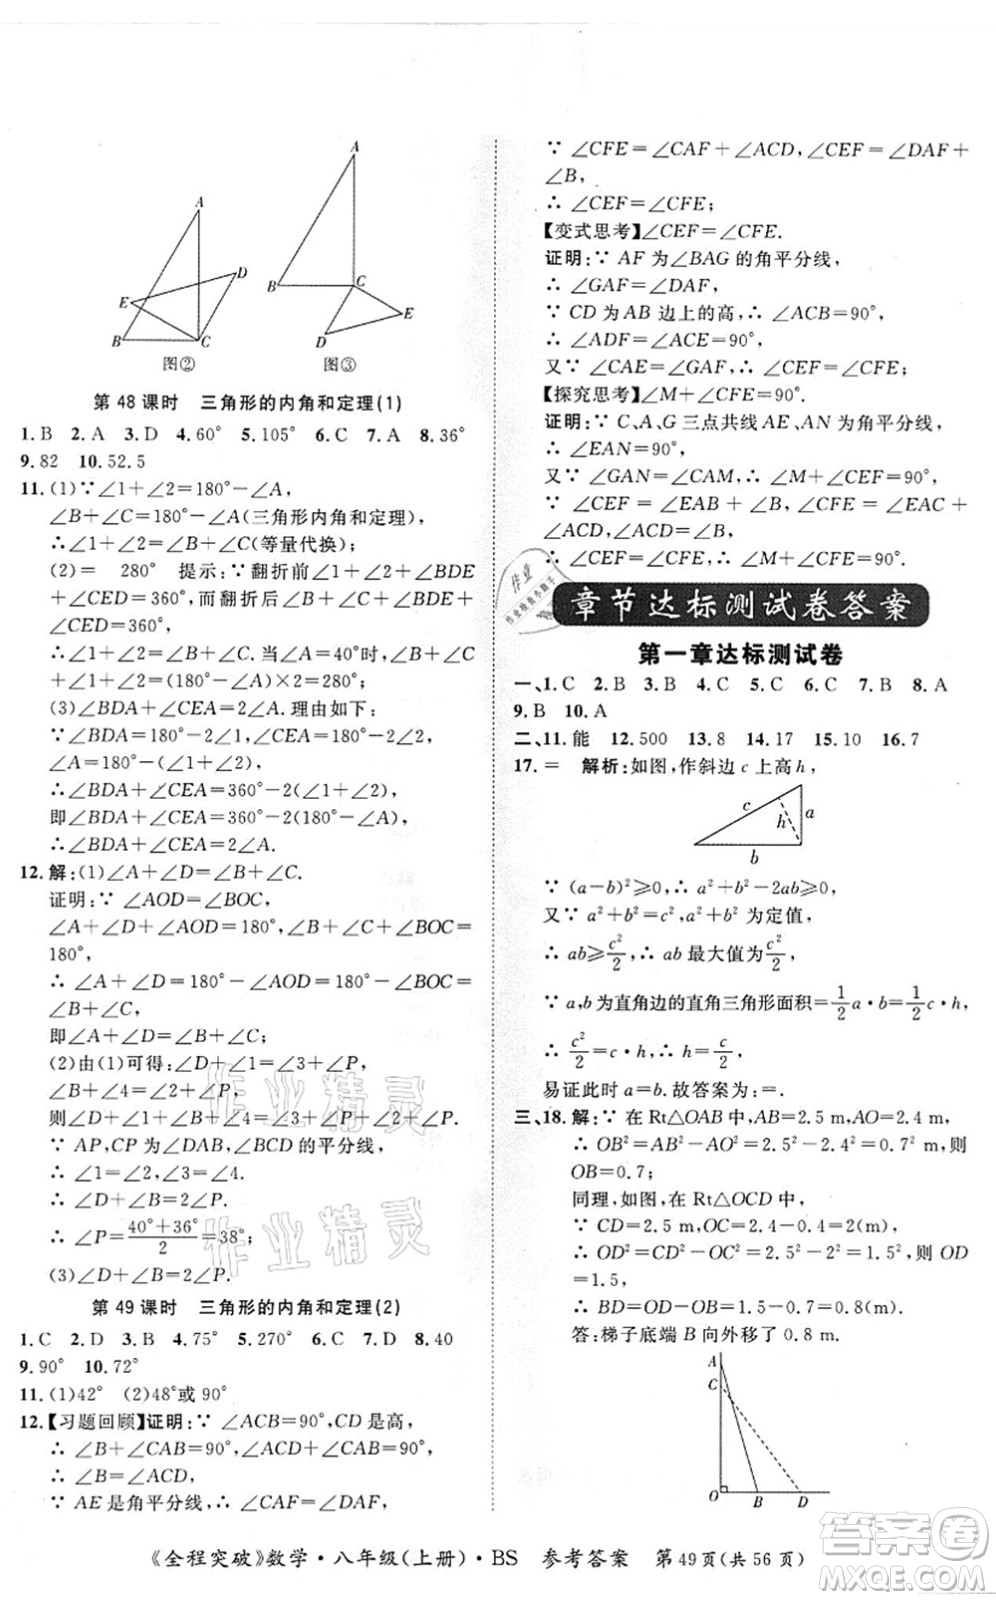 A
D
E
B
C
图②
A
B
C
E
D
图③
第 48 课时　三角形的内角和定理(1)
1.B　2.A　3.D　4.60°　5.105°　6.C　7.A　8.36°
9.82　10.52.5
11.(1)∵∠1+∠2=180°-∠A,
∠B+∠C=180°-∠A(三角形内角和定理),
∴∠1+∠2=∠B+∠C(等量代换);
(2)=　280°　提示:∵翻折前∠1+∠2+∠BDE
+∠CED=360°,而翻折后∠1+∠2+∠BDE+
∠CED=360°.∴当∠A=40°时,∠BDA+∠CEA
=(180°-∠A)×2=280°;
(3)∠BDA+∠CEA=2∠A.理由如下:
∵∠BDA=180°-2∠1,∠CEA=180°-2∠2,
∴∠BDA+∠CEA=360°-2(∠1+∠2).
即∠BDA+∠CEA=360°-2(180°-∠A).
∴∠BDA+∠CEA=2∠A.
12.解:(1)∠A+∠D=∠B+∠C.
证明:∵ ∠AOD=∠BOC,
∠A+∠D+∠AOD=∠B+∠C+∠BOC=
180°,
∴ ∠A+∠D=180°-∠AOD=180°-∠BOC=
∠B+∠C,
即∠A+∠D=∠B+∠C;
(2)由(1)可得:∠1+∠D=∠3+∠P,
∠B+∠4=∠2+∠P,
则∠D+∠1+∠B+∠4=∠3+∠2+2∠P.
∵ AP,CP为∠DAB,∠BCD的平分线,
∴ ∠1=∠2,∠3=∠4.
∴ ∠D+∠B=2∠P.
∴ ∠P=\frac{40°+36°}{2}=38°;
(3)∠D+∠B=2∠P.
第 49 课时　三角形的内角和定理(2)
1.C　2.D　3.B　4.75°　5.270°　6.C　7.D　8.40
9.90°　10.72°
11.(1)42°　(2)48°或 90°
12.【习题回顾】证明:∵ ∠ACB=90°,CD是高,
∴ ∠B+∠CAB=90°,∠ACD+∠CAB=90°,
∴ ∠B=∠ACD,
∵ AE是角平分线,∴ ∠CAF=∠DAF.
∵ ∠CFE=∠CAF+∠ACD,∠CEF=∠DAF+
∠B,
∴ ∠CEF=∠CFE;
【变式思考】∠CEF=∠CFE.
证明:∵ AF为∠BAG的角平分线,
∴ ∠GAF=∠DAF.
∵ CD为AB边上的高,∴ ∠ACB=90°,
∴ ∠ADF=∠ACE=90°,
又∵ ∠CAE=∠GAF,∴ ∠CEF=∠CFE.
【探究思考】∠M+∠CFE=90°.
证明:∵ C、A、G三点共线AE、AN为角平分线,
∴ ∠EAN=90°.
又∵ ∠GAN=∠CAM,∴ ∠M+∠CEF=90°.
∵ ∠CEF = ∠EAB + ∠B, ∠CFE = ∠EAC +
∠ACD,∠ACD=∠B,
∴ ∠CEF=∠CFE. ∴ ∠M+∠CFE=90°.
章节达标测试卷答案
第一章达标测试卷
一、1.C　2.B　3.B　4.C　5.C　6.C　7.B　8.A
9.B　10.A
二、11.能　12.500　13.8　14.17　15.10　16.7
17.=　解析:如图,作斜边c上高h,
c
h
a
b
∵ (a-b)²≥0,∴ a²+b²-2ab≥0,
又∵ a²+b²=c²为定值,
∴ ab≥\frac{c²}{2},∴ ab最大值为\frac{c²}{2}.
∵ a,b为直角边的直角三角形面积=\frac{1}{2}a·b=\frac{1}{2}c·h,
∴ \frac{c²}{2}=c·h,∴ h=\frac{c}{2},
易证此时a=b.故答案为:=.
三、18.解:∵ 在Rt△OAB中,AB=2.5 m,AO=2.4 m,
∴ OB²=AB²-AO²=2.5²-2.4²=0.7² m,则
OB=0.7;
同理,如图,在Rt△OCD中,
∵ CD=2.5 m,CO=2.4-0.4=2(m),
∴ OD²=CD²-OC²=2.5²-2²=1.5²,则 OD
=1.5,
∴ BD=OD-OB=1.5-0.7=0.8(m).
答:梯子底端B向外移了0.8 m.
A
C
O
B
D
《全程突破》数学·八年级(上册)·BS　参考答案　第49页(共56页)
作业精灵
作业精灵
答案圈
MXQE.COM